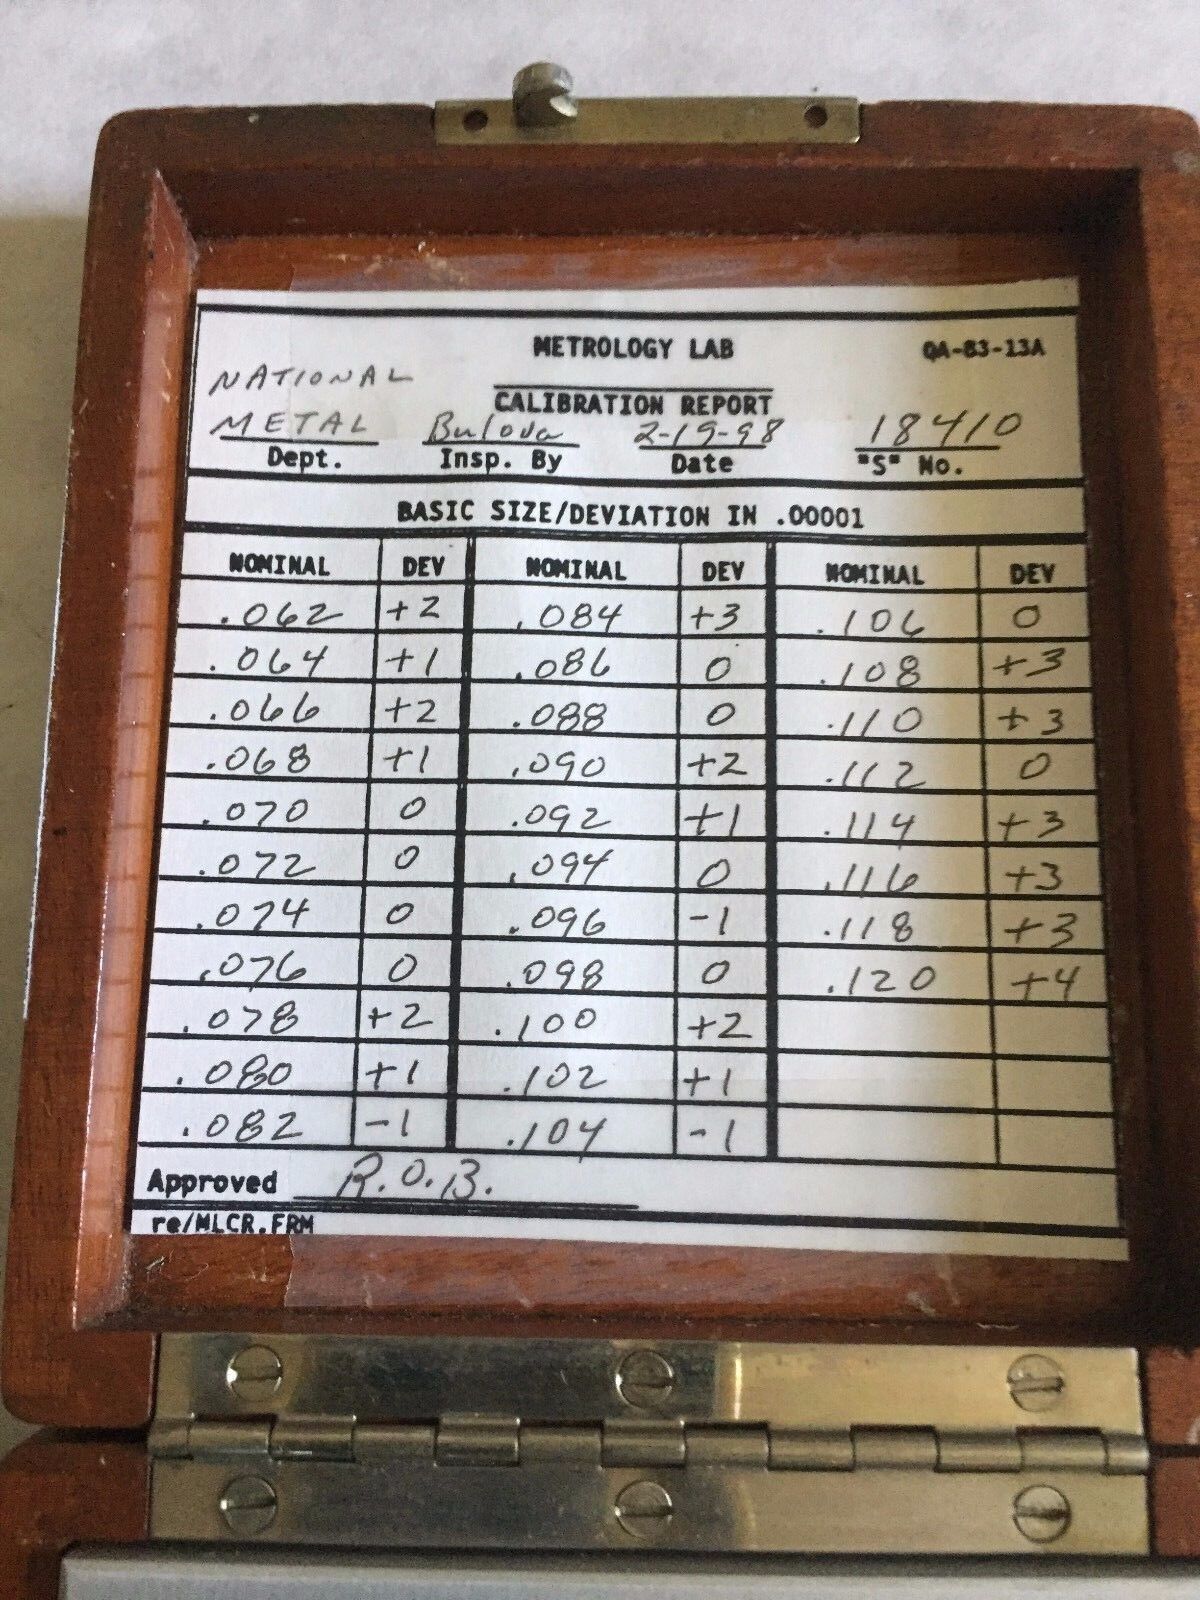 METROLOGY LAB QA-83-13A
NATIONAL
CALIBRATION REPORT
METAL Bulova 2-19-98 18410
Dept. Insp. By Date "S" No.
BASIC SIZE/DEVIATION IN .00001
NOMINAL DEV NOMINAL DEV NOMINAL DEV
.062 +2 .084 +3 .106 0
.064 +1 .086 0 .108 +3
.066 +2 .088 0 .110 +3
.068 +1 .090 +2 .112 0
.070 0 .092 +1 .114 +3
.072 0 .094 0 .116 +3
.074 0 .096 -1 .118 +3
.076 0 .098 0 .120 +4
.078 +2 .100 +2
.080 +1 .102 +1
.082 -1 .104 -1
Approved R.O.B.
re/MLCR.FRM